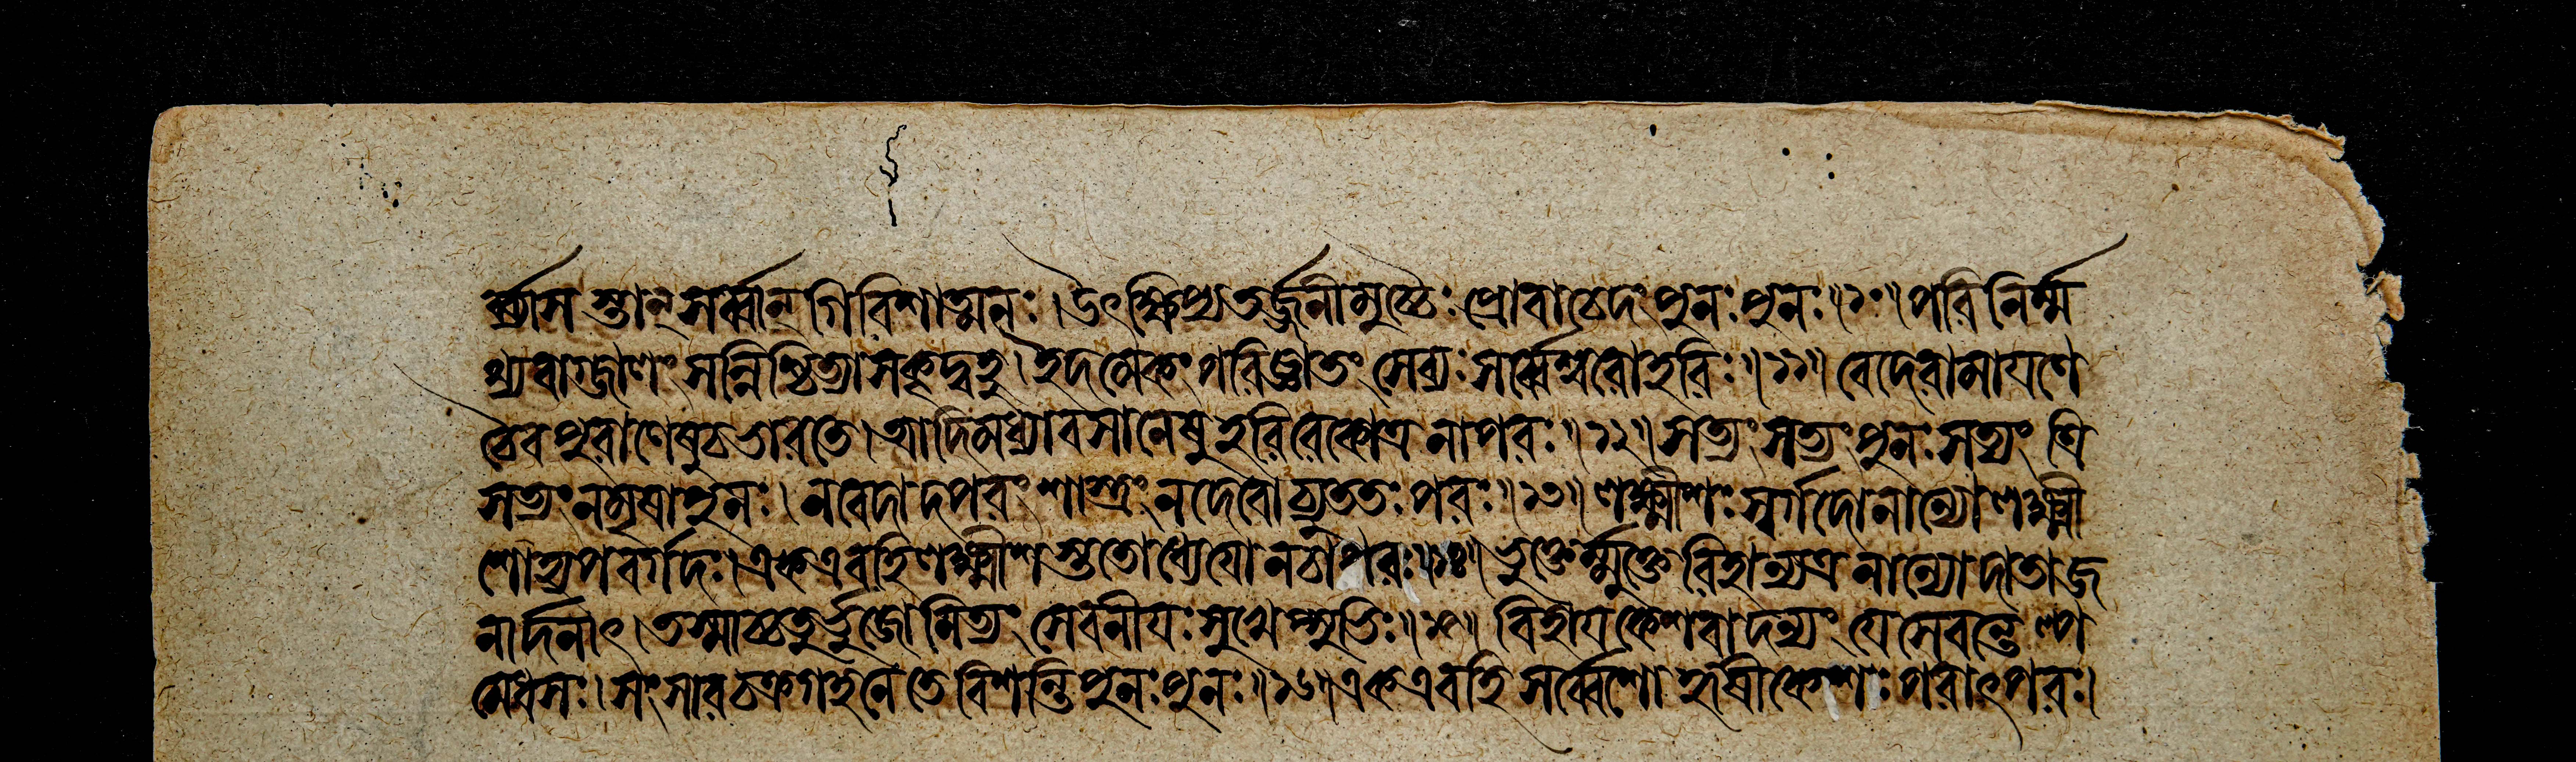 র্ব্যাস স্তান্ সর্ব্বান্ গিরিশাত্মনঃ।উৎক্ষিপ্য তর্জ্জনীমুচ্চৈঃ প্রোবাচেদং পুনঃ পুনঃ॥১০॥পরিনির্ম্ম
থ্য বাগ্জালং সন্নিশ্চিত্যাসকৃদ্বহু।ইদমেকং পরিজ্ঞাতং সেব্যঃ সর্ব্বেশ্বরোহরিঃ॥১১॥বেদেরামায়ণে
চৈব পুরাণেষুচভারতে।আদিমধ্যাবসানেষুহরিরেকোত্র নাপরঃ॥১২॥সত্যং সত্যং পুনঃ সত্যং ত্রি
সত্যং নমৃষাপুনঃ।নবেদাদপরং শাস্ত্রং নদেবোচ্যুততঃ পরঃ॥১৩॥লক্ষ্মীশঃ স্বর্গদোনান্যোলক্ষ্মী
শোপ্যপবর্গদঃ।এক এবহিলক্ষ্মীশ স্ততোধ্যেয়োনচাপরঃ॥১৪॥ভুক্তের্ম্মুক্তেরিহান্যত্র নান্যোদাতাজ
নার্দনাৎ।তস্মাচ্চতুর্ভুজোনিত্যং সেবনীয়ঃ সুখেপ্সুভিঃ॥১৫॥ বিহায় কেশবাদন্যং যে সেবন্তেল্প
মেধসঃ।সংসারচক্রগহনে তে বিশন্তি পুনঃপুনঃ॥১৬॥এক এবহি সর্ব্বেশো হৃষীকেশঃ পরাৎপরঃ।